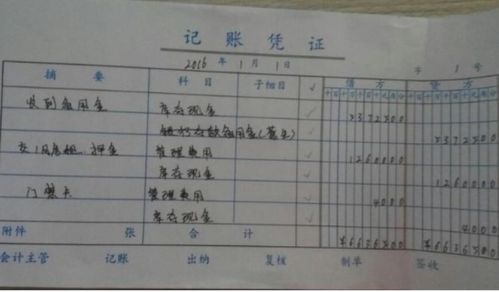 记账凭证
2016年1月1日 字1号
摘要 科目 子细目 √ 借方 贷方
收到备用金 库存现金 √ 5372500
备用金(蓝色) 5372500
交1月房租、押金 管理费用 √ 1260000
库存现金 √ 1260000
门禁卡 管理费用 √ 4000
库存现金 √ 4000
附件 张 合计 ¥6636500 ¥6636500
会计主管 记账 出纳 复核 制单 签收